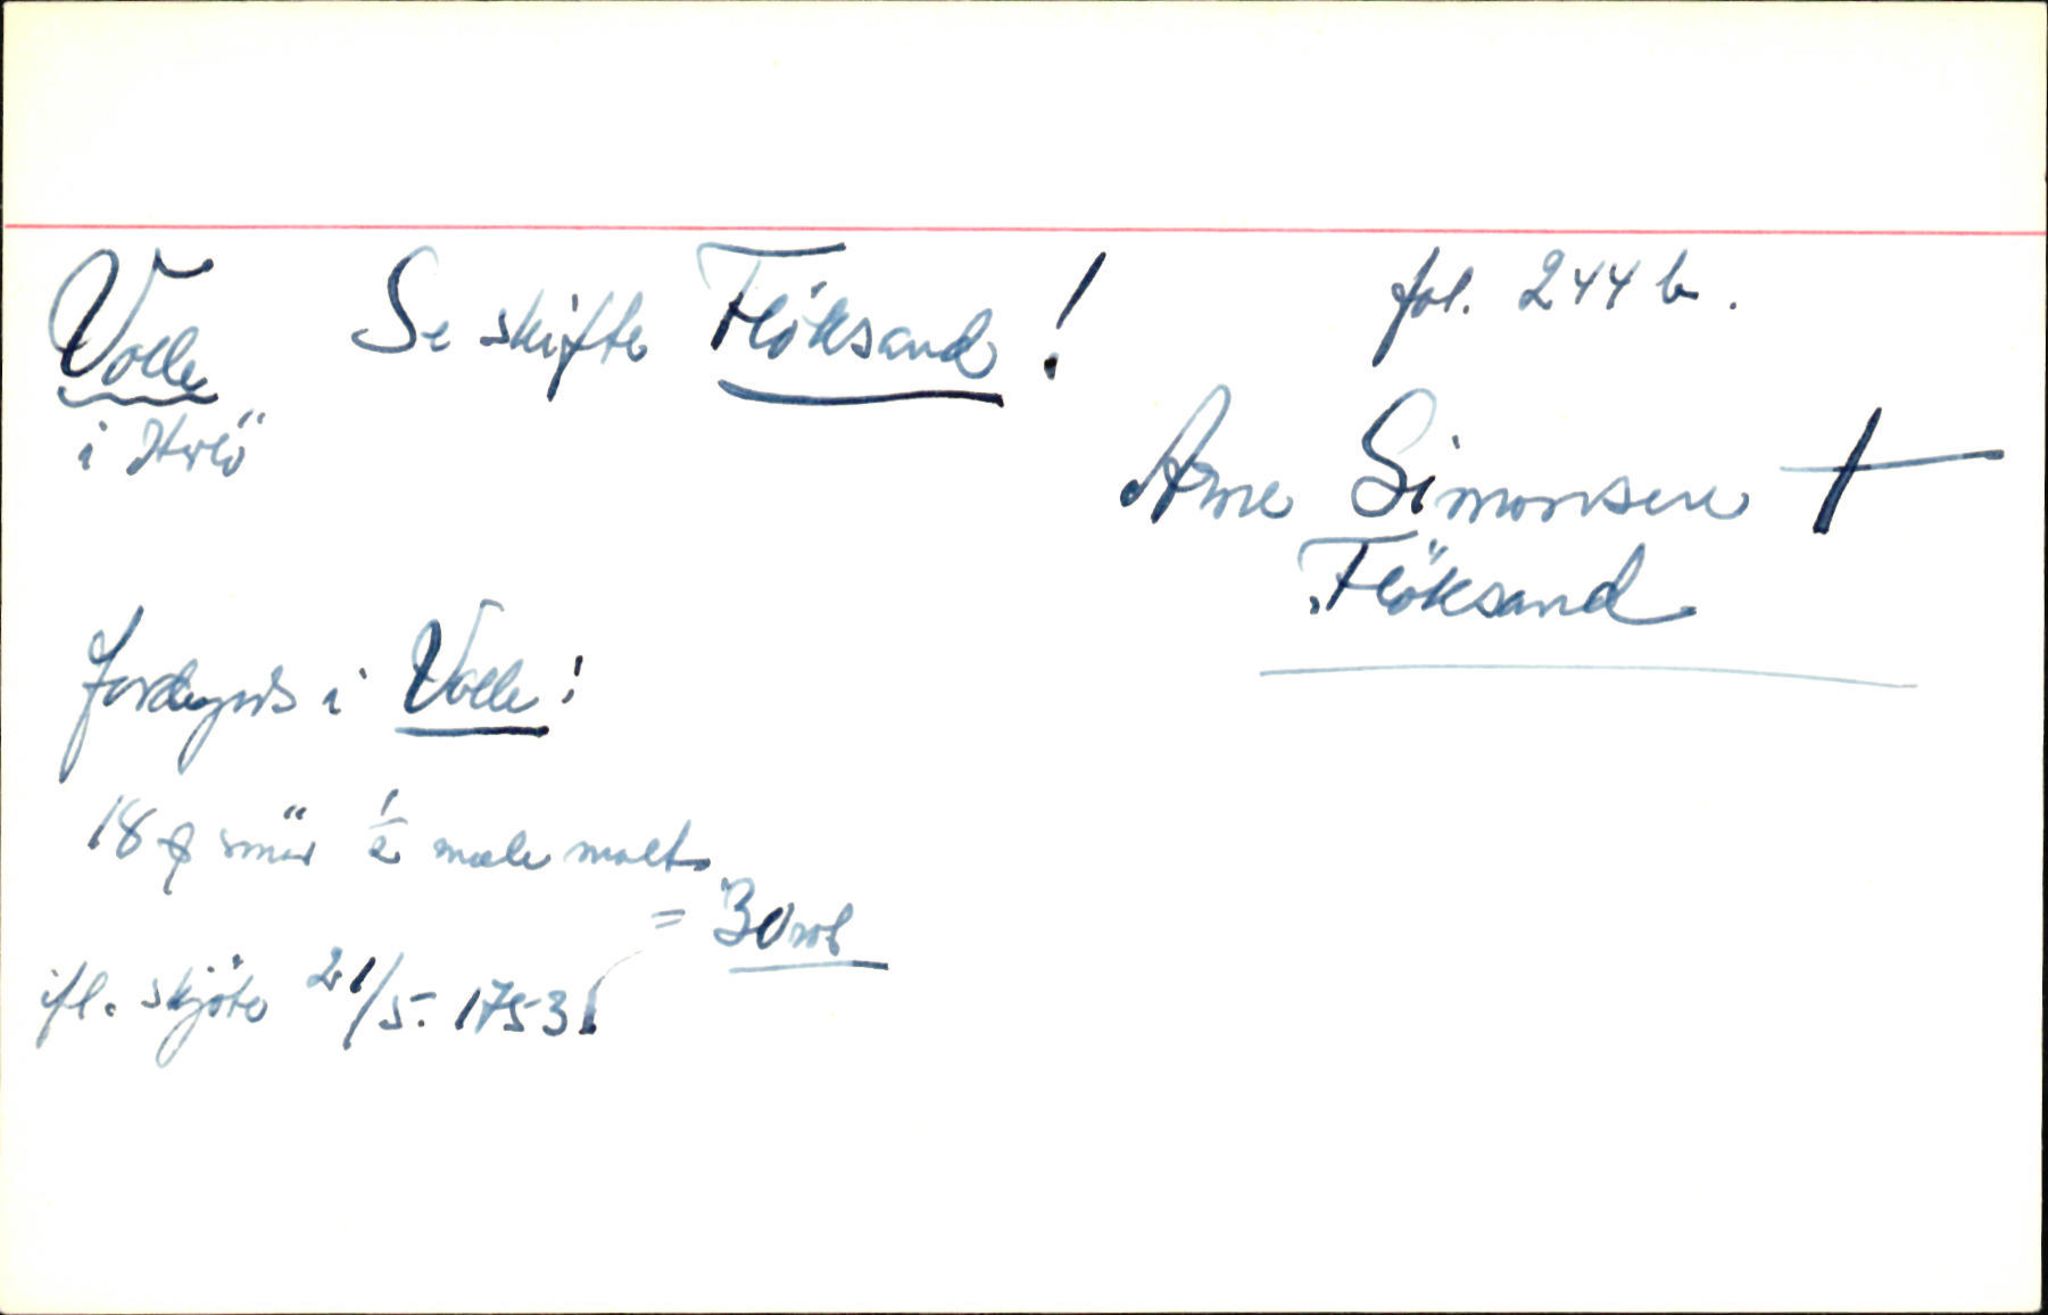 Volle Se skifte Flöksand! fol. 244 b.
i Herlö
Arne Simonsen †
Flöksand
Jordegods i Volle:
18 smör 1/2 mæle malt
= 30 rd
ifl. skjöte 21/5. 1753